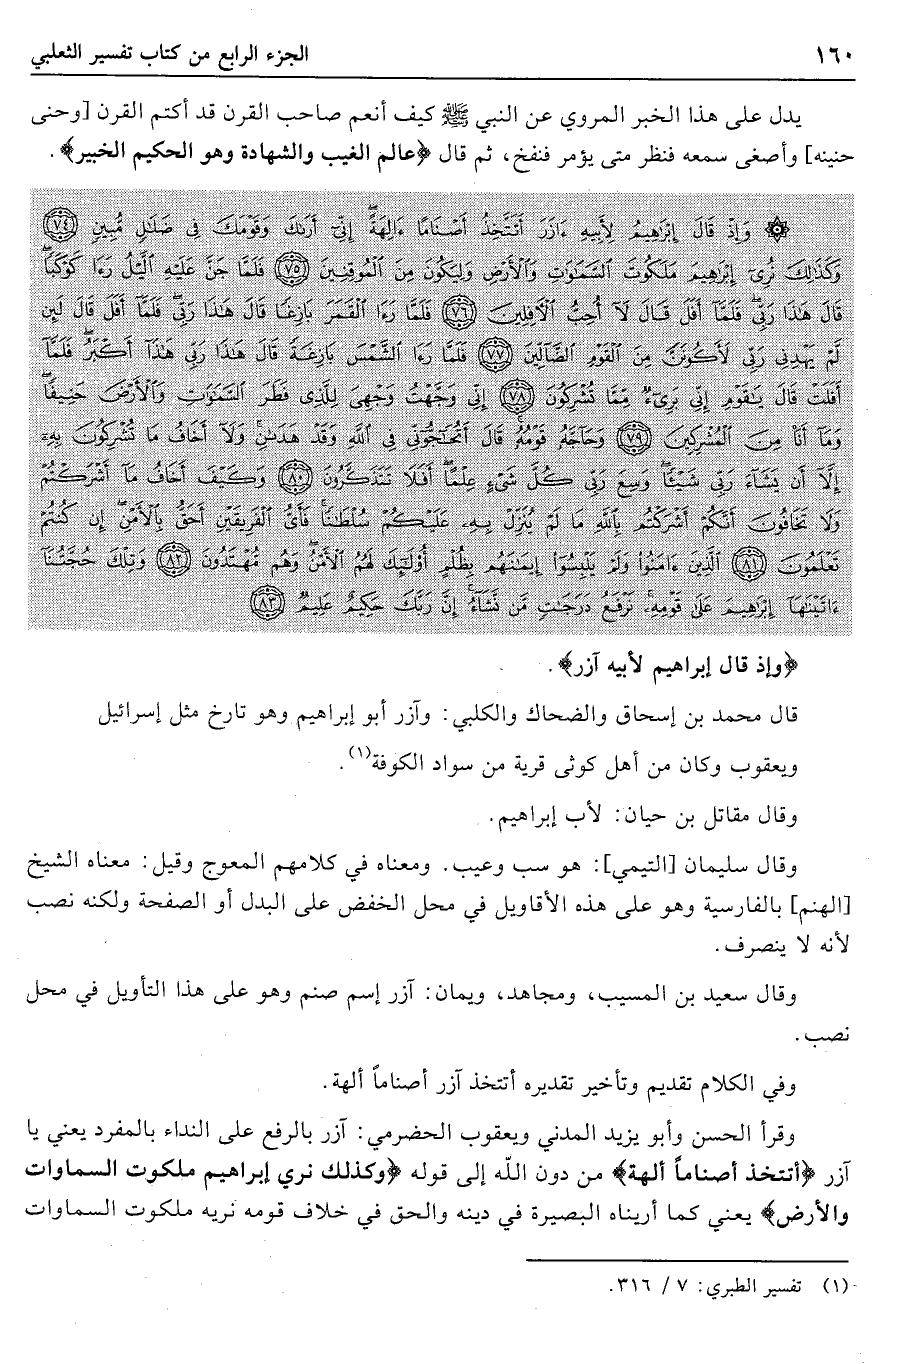 ١٦٠ الجزء الرابع من كتاب تفسير الثعلبي
يدل على هذا الخبر المروي عن النبي ﷺ كيف أنعم صاحب القرن قد أكتم القرن [وحنى
حنينه] وأصغى سمعه فنظر متى يؤمر فنفخ، ثم قال ﴿عالم الغيب والشهادة وهو الحكيم الخبير﴾.
۞ وَإِذْ قَالَ إِبْرَٰهِيمُ لِأَبِيهِ ءَازَرَ أَتَتَّخِذُ أَصْنَامًا ءَالِهَةً ۖ إِنِّىٓ أَرَىٰكَ وَقَوْمَكَ فِى ضَلَٰلٍ مُّبِينٍ ﴿٧٤﴾
وَكَذَٰلِكَ نُرِىٓ إِبْرَٰهِيمَ مَلَكُوتَ السَّمَٰوَٰتِ وَالْأَرْضِ وَلِيَكُونَ مِنَ الْمُوقِنِينَ ﴿٧٥﴾ فَلَمَّا جَنَّ عَلَيْهِ الَّيْلُ رَءَا كَوْكَبًا ۖ
قَالَ هَٰذَا رَبِّى ۖ فَلَمَّآ أَفَلَ قَالَ لَآ أُحِبُّ الْآفِلِينَ ﴿٧٦﴾ فَلَمَّا رَءَا الْقَمَرَ بَازِغًا قَالَ هَٰذَا رَبِّى ۖ فَلَمَّآ أَفَلَ قَالَ لَئِن
لَّمْ يَهْدِنِى رَبِّى لَأَكُونَنَّ مِنَ الْقَوْمِ الضَّآلِّينَ ﴿٧٧﴾ فَلَمَّا رَءَا الشَّمْسَ بَازِغَةً قَالَ هَٰذَا رَبِّى هَٰذَآ أَكْبَرُ ۖ فَلَمَّآ
أَفَلَتْ قَالَ يَٰقَوْمِ إِنِّى بَرِىٓءٌ مِّمَّا تُشْرِكُونَ ﴿٧٨﴾ إِنِّى وَجَّهْتُ وَجْهِىَ لِلَّذِى فَطَرَ السَّمَٰوَٰتِ وَالْأَرْضَ حَنِيفًا ۖ
وَمَآ أَنَا۠ مِنَ الْمُشْرِكِينَ ﴿٧٩﴾ وَحَآجَّهُۥ قَوْمُهُۥ ۚ قَالَ أَتُحَٰٓجُّوٓنِّى فِى اللَّهِ وَقَدْ هَدَىٰنِ ۚ وَلَآ أَخَافُ مَا تُشْرِكُونَ بِهِۦٓ
إِلَّآ أَن يَشَآءَ رَبِّى شَيْـًٔا ۗ وَسِعَ رَبِّى كُلَّ شَىْءٍ عِلْمًا ۗ أَفَلَا تَتَذَكَّرُونَ ﴿٨٠﴾ وَكَيْفَ أَخَافُ مَآ أَشْرَكْتُمْ
وَلَا تَخَافُونَ أَنَّكُمْ أَشْرَكْتُم بِاللَّهِ مَا لَمْ يُنَزِّلْ بِهِۦ عَلَيْكُمْ سُلْطَٰنًا ۚ فَأَىُّ الْفَرِيقَيْنِ أَحَقُّ بِالْأَمْنِ ۖ إِن كُنتُمْ
تَعْلَمُونَ ﴿٨١﴾ الَّذِينَ ءَامَنُوا۟ وَلَمْ يَلْبِسُوٓا۟ إِيمَٰنَهُم بِظُلْمٍ أُو۟لَٰٓئِكَ لَهُمُ الْأَمْنُ وَهُم مُّهْتَدُونَ ﴿٨٢﴾ وَتِلْكَ حُجَّتُنَآ
ءَاتَيْنَٰهَآ إِبْرَٰهِيمَ عَلَىٰ قَوْمِهِۦ ۚ نَرْفَعُ دَرَجَٰتٍ مَّن نَّشَآءُ ۗ إِنَّ رَبَّكَ حَكِيمٌ عَلِيمٌ ﴿٨٣﴾
﴿وإذ قال إبراهيم لأبيه آزر﴾.
قال محمد بن إسحاق والضحاك والكلبي: وآزر أبو إبراهيم وهو تارخ مثل إسرائيل
ويعقوب وكان من أهل كوثى قرية من سواد الكوفة(١).
وقال مقاتل بن حيان: لأب إبراهيم.
وقال سليمان [التيمي]: هو سب وعيب. ومعناه في كلامهم المعوج وقيل: معناه الشيخ
[الهنم] بالفارسية وهو على هذه الأقاويل في محل الخفض على البدل أو الصفحة ولكنه نصب
لأنه لا ينصرف.
وقال سعيد بن المسيب، ومجاهد، ويمان: آزر إسم صنم وهو على هذا التأويل في محل
نصب.
وفي الكلام تقديم وتأخير تقديره أتتخذ آزر أصناماً ألهة.
وقرأ الحسن وأبو يزيد المدني ويعقوب الحضرمي: آزر بالرفع على النداء بالمفرد يعني يا
آزر ﴿أتتخذ أصناماً ألهة﴾ من دون اللّه إلى قوله ﴿وكذلك نري إبراهيم ملكوت السماوات
والأرض﴾ يعني كما أريناه البصيرة في دينه والحق في خلاف قومه نريه ملكوت السماوات
(١) تفسير الطبري: ٧ / ٣١٦.